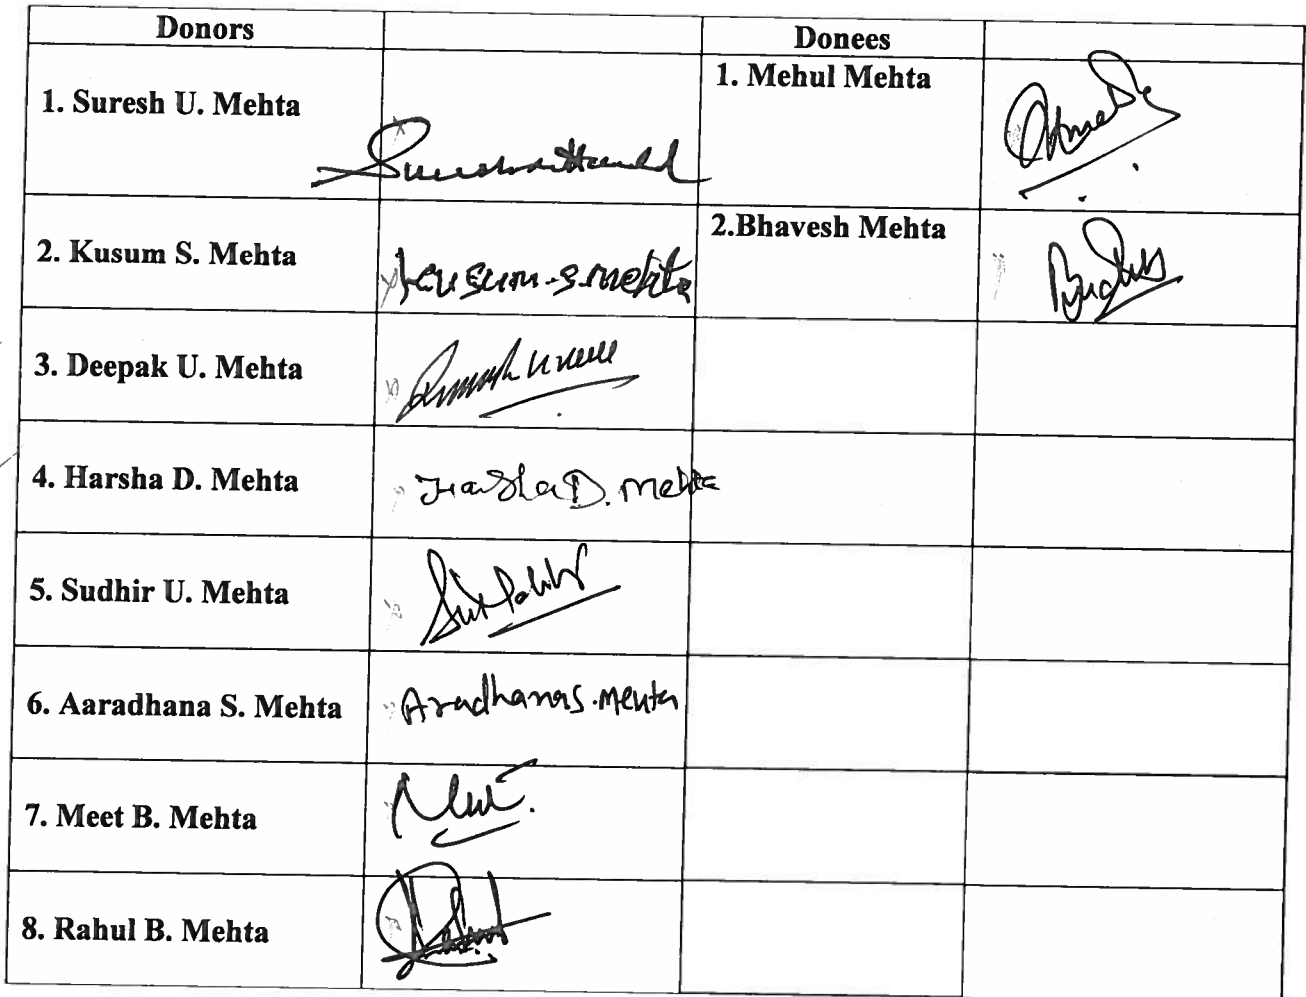 Donors
Donees
1. Suresh U. Mehta
1. Mehul Mehta
2. Kusum S. Mehta
Kusum.S.Mehta
2.Bhavesh Mehta
3. Deepak U. Mehta
4. Harsha D. Mehta
Harsha D. Mehta
5. Sudhir U. Mehta
6. Aaradhana S. Mehta
AradhanaS.Mehta
7. Meet B. Mehta
8. Rahul B. Mehta